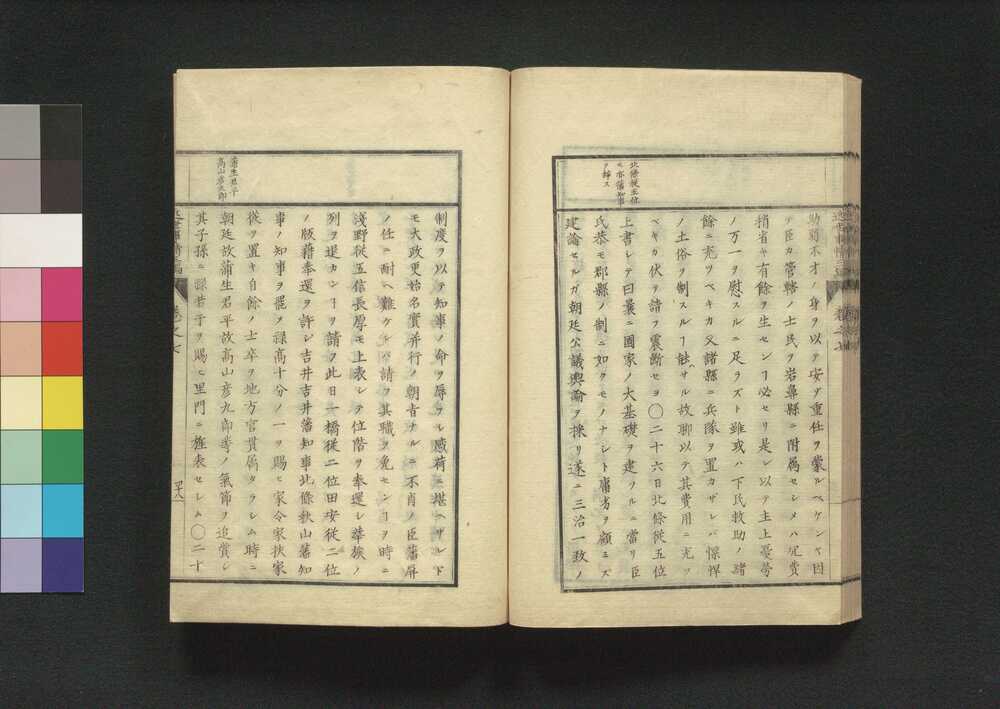 北條從五位
モ亦藩知事
ヲ辞ス
助菊不才ノ身ヲ以テ安ゾ重任ヲ蒙ルベケンヤ因
テ臣カ管轄ノ士民ヲ岩鼻縣ニ附属セシメハ冗費
稍省キ有餘ヲ生センヿ必セリ是レ以テ主上憂勞
ノ万一ヲ慰スルニ足ラスト雖或ハ下民救助ノ緒
餘ニ充ツベキカ又諸縣ニ兵隊ヲ置カザレバ慓悍
ノ土俗ヲ制スルヿ能ハザル故聊以テ其費用ニ充ツ
ベキカ伏シ請フ震断セヨ〇二十六日北條從五位
上書シテ曰曩ニ國家ノ大基礎ヲ建ツルニ當リ臣
氏恭モ郡縣ノ制ニ如クモノナシト庸劣ヲ顧ミズ
建論セルガ朝廷公議輿論ヲ採リ遂ニ三治一致ノ
蒲生君平
高山彦九郎
制度ヲ以テ知事ノ命ヲ辱フシ感荷ニ堪ヘザレ𪜈
モ大政更始名實并行ノ朝旨ナルニ不肖ノ臣藩屏
ノ任ニ耐ヘ難ケレバ請フ其職ヲ免センヿヲ時ニ
淺野從五信長厚モ上表シテ位階ヲ奉還シ華族ノ
列ヲ退カンヿヲ請フ此日一橋從二位田安從二位
ノ版藉奉還ヲ許シ吉井吉井藩知事北條狭山藩知
事ノ知事ヲ罷ヲ禄高十分ノ一ヲ賜ヒ家令家扶家
從ヲ置キ自餘ノ士卒ヲ地方官貫属タラシム時ニ
朝廷故蒲生君平故高山彦九郎等ノ氣節ヲ追賞シ
其子孫ニ禄若干ヲ賜ヒ里門ニ旌表セシム〇二十
巻之七